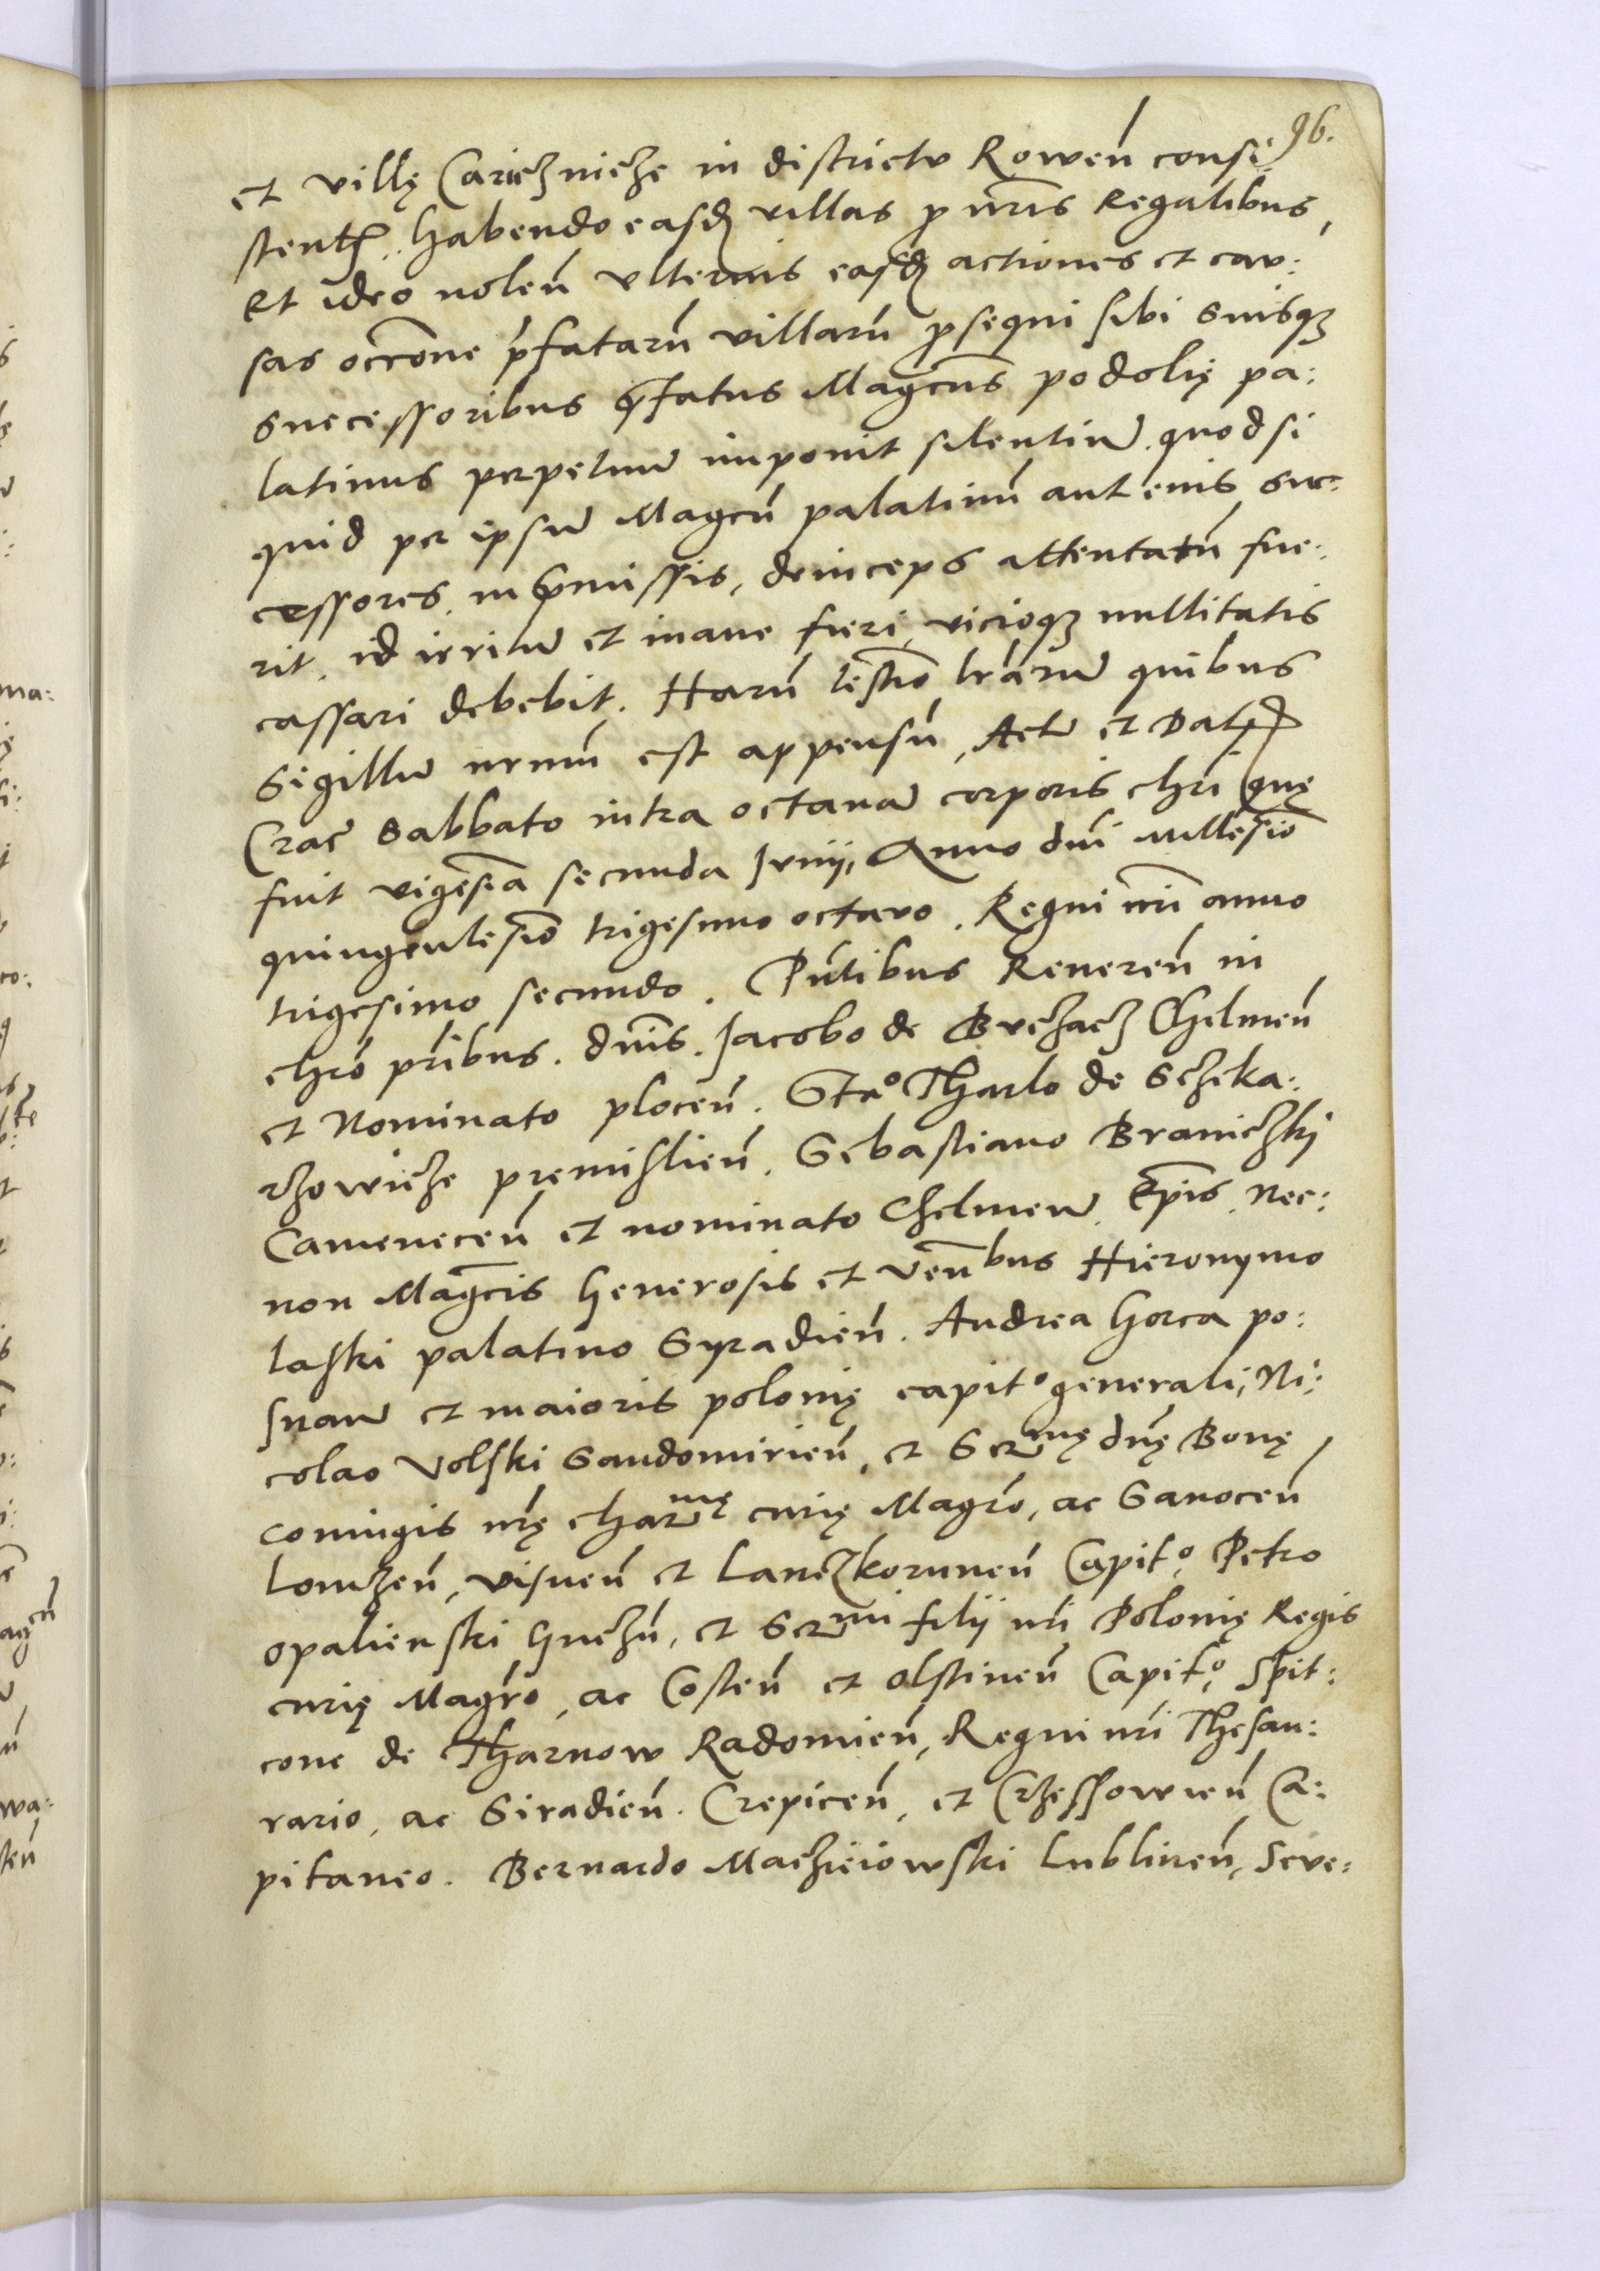 96.
et villę Caricznicze in districtu Rowen̄ consi
stent̄. habendo easd̄ villas p nr̄is Regalibus,
Et ideo nolen̄ vlterius easd̄ actiones et cau:
sas occōne p̄fatarū villarū psequi sibi suisqꝫ
successoribus p̄fatus Mageūs podolię pa:
latinus perpetuū imponit silentiū. quod si
quid per ipsū Magcū palatinū aut eius suc:
cessores. in p̄missis, deinceps attentatū fue:
rit. id irritū et inane fieri, vicioqꝫ nullitatis
cassari debebit. Harū testio lrarū quibus
Sigillū nrm̄ est appensū, Actū et Dat̄
Crac̄ Sabbato intra octauā corporis chri quę
fuit vigesia secunda Junij, Anno dnī millesio
quingentesio trigesimo octavo. Regni nr̄i anno
trigesimo secundo. Pntibus Reueren̄ in
chrō pribus. dnis. Jacobo de Buczacz Chelmen̄
et Nominato plocen̄. Stao Tharlo de Sczeka:
rzowicze premislien̄. Sebastiano Braniczki
Camenecen̄ et nominato Chelmen̄. Ep̄is. Nec:
non Magcis Generosis et Ven̄bus Hieronymo
laski palatino Syradien̄. Andrea Gorca po:
snan̄ et maioris polonię capito generali, Ni:
colao Volski Sandomirien̄, et Sermę dnę Bonę
coniugis nrę charmę curię Magrō, ac Sanocen̄
Lomzen̄, visnen̄ et Lanczkorunen̄ Capito, Petro
opalienski Gnezn̄, et Sermi filij nri Polonię Regis
curię Magrō, ac Costen̄ et olstinen̄ Capito, Spit:
cone de Tharnow Radomien̄, Regni nri Thesau:
rario, ac Siradien̄. Crepicen̄, et Crzessowien̄ Ca:
pitaneo. Bernardo Macziėiowski Lublinen̄, Seve: